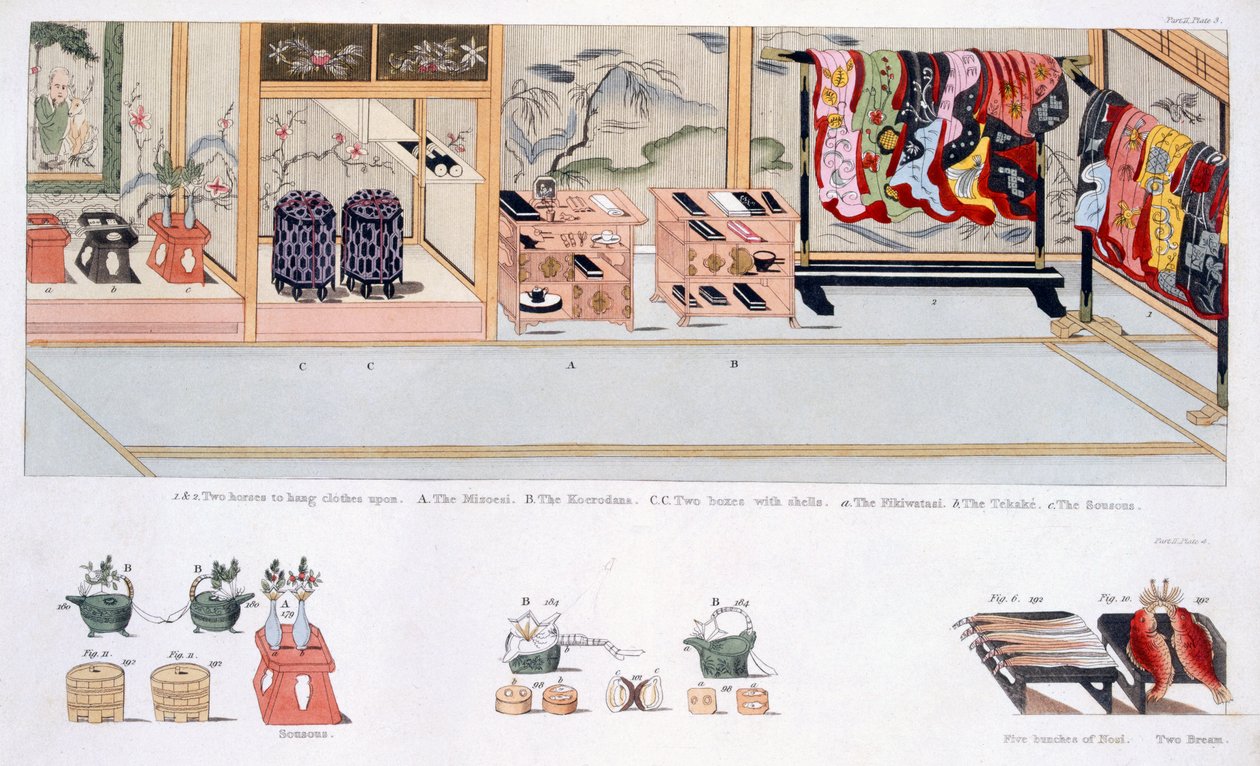 Part.II. Plate 3.
2
1
a
b
c
C
C
A
B
1 & 2. Two horses to hang clothes upon. A. The Mizoesi. B. The Koerodana. C.C. Two boxes with shells. a. The Fikiwatasi. b. The Tekaké. c. The Sousous.
Part.II. Plate 4.
B
B
160
160
A
179
a
b
Fig. 11.
192
Fig. 11.
192
Sousous.
B
184
b
B
184
a
b
98
b
c
101
c
a
98
a
Fig. 6.
192
Fig. 10.
192
Five bunches of Nosi.
Two Bream.